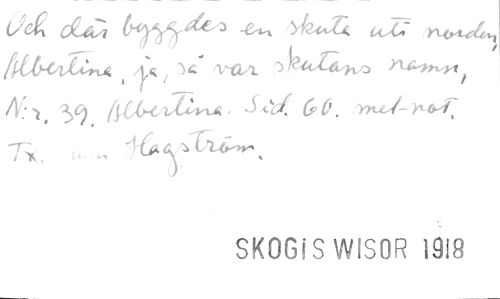 Och där byggdes en skuta uti norden,
Albertina, ja, så var skutans namn,
N:r. 39. Albertina. Sid. 60. met-not.
Tx. Hagström.
SKOGIS WISOR 1918